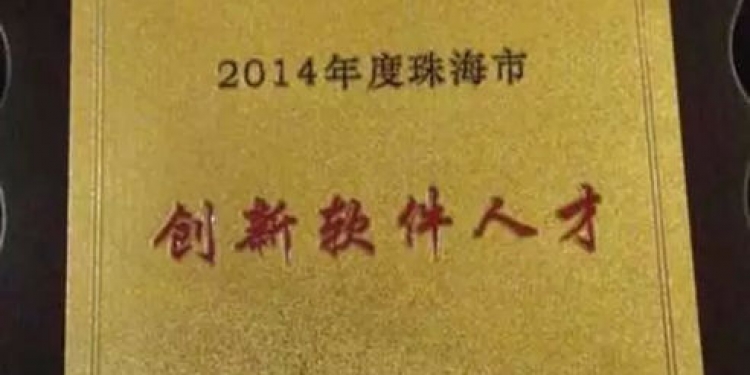 2014年度珠海市
创新软件人才